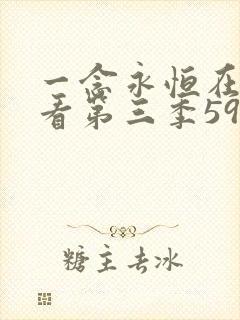 一念永恒在
看第三季59
糖主去冰